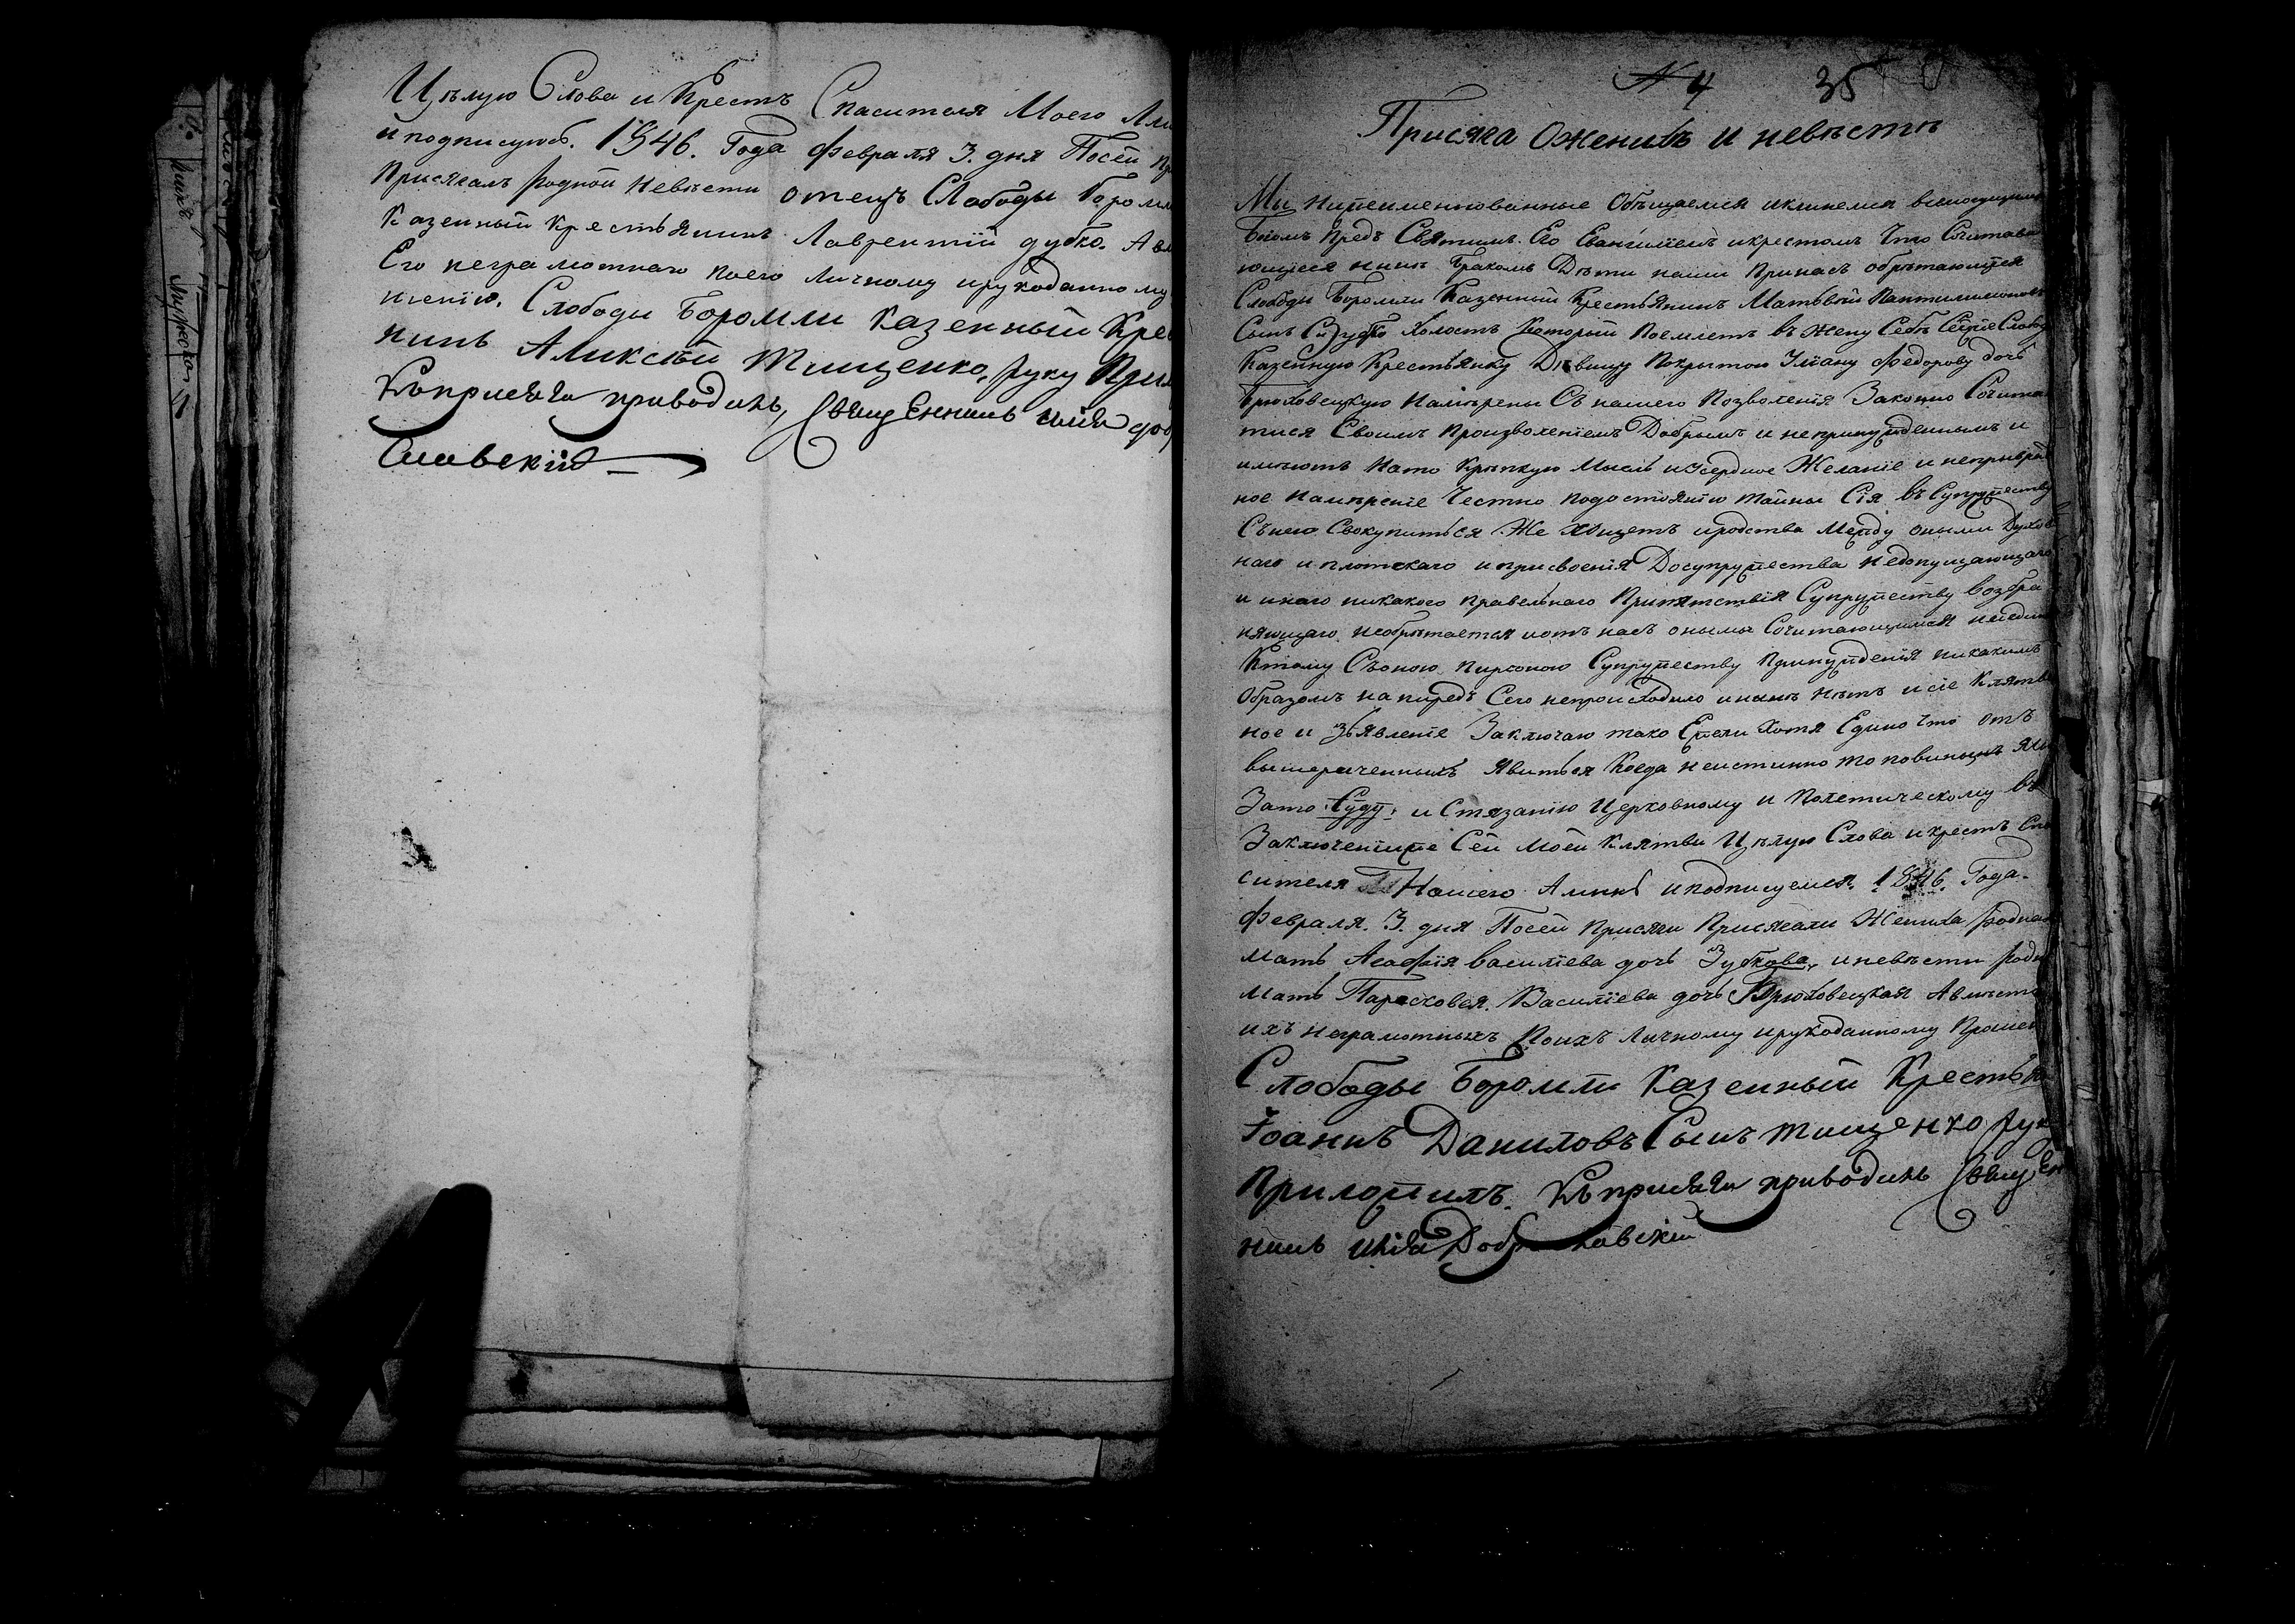 Цѣлую Слова и Крестъ Спасителя Моего
и подписуюсь. 1846. Года Февраля 3. дня Посей
Присягалъ родной Невѣсти отецъ Слободы Боромли
Казенный Крестьянинъ Лаврентій дубко.
Его неграмотнаго поего личному ирукоданному
шенію, Слободы Боромли Казенный Кре
нинъ Алексѣй Тищенко, руку При
Къ присягѣ приводилъ, Священникъ
славскій
№ 4 35
Присяга Оженихѣ и невѣстѣ
Мы нижеименнованные Обѣщаемся иклянемся всемогущимъ
Богомъ предъ Святимъ Его Евангиліемъ икрестомъ Что Сочитава
ющіеся нинѣ бракомъ Дѣти наши Принасъ обрѣтающіеся
Слободы Боромли Казенный Крестьянинъ Матвѣй Пантилимоновъ
Сынъ Зубко холостъ Который Поемлетъ въ Жену Себѣ
Казенную Крестьянку Дѣвицу Покрытою Уліану Федорову дочь
Брюховецкую Намѣрены Съ нашего Позволенія Законно Сочита
тися Своимъ Произволеніемъ Добрымъ и непринужденнымъ и
имѣютъ Нато Крѣпкую Мысль иУсердное Желаніе и непрѣврат
ное намѣреніе Честно подостоянію тайны Сія въ Супружеству
Сънею Совокупиться Же ищетъ иродства Между оными Духов
наго и плотскаго и присвоенія Досупружества недопущающаго
и инаго никакого правельнаго Припятствія Супружеству возбра
няющаго необрѣтается иотъ насъ онымъ Сочитающимся
Ктому Съоною Персоною Супружеству Принужденія никакимъ
Образомъ напредъ Сего непроисходило инынѣ нѣтъ исіе Клятве
ное и Зъявленіе Заключаю тако Ежели Хотя Едино Что отъ
вышереченныхъ Явиться Когда неистинно то повиненъ
Зато Суду: и Стязанію Церковному и Политическому въ
Заключеніиже Сей Моей Клятвы Цѣлую Слова икрестъ Спа
сителя Нашего Аминь иподписуемся, 1846. Года.
Февраля. 3. дня Посей Присяги Присягали Жениха родная
мать Агафія василіева дочь Зубкова, иневѣсти родн
мать Парасковея. Василіева дочь Брюховецкая Авмѣсто
ихъ неграмотныхъ Поихъ Личному ирукоданному Прошен
Слободы Боромли Казенный Крестьян
Іоаннъ Даниловъ Сынъ Тищенко рук
Приложилъ. Къ присягѣ приводилъ Свящ
никъ Доброславскій